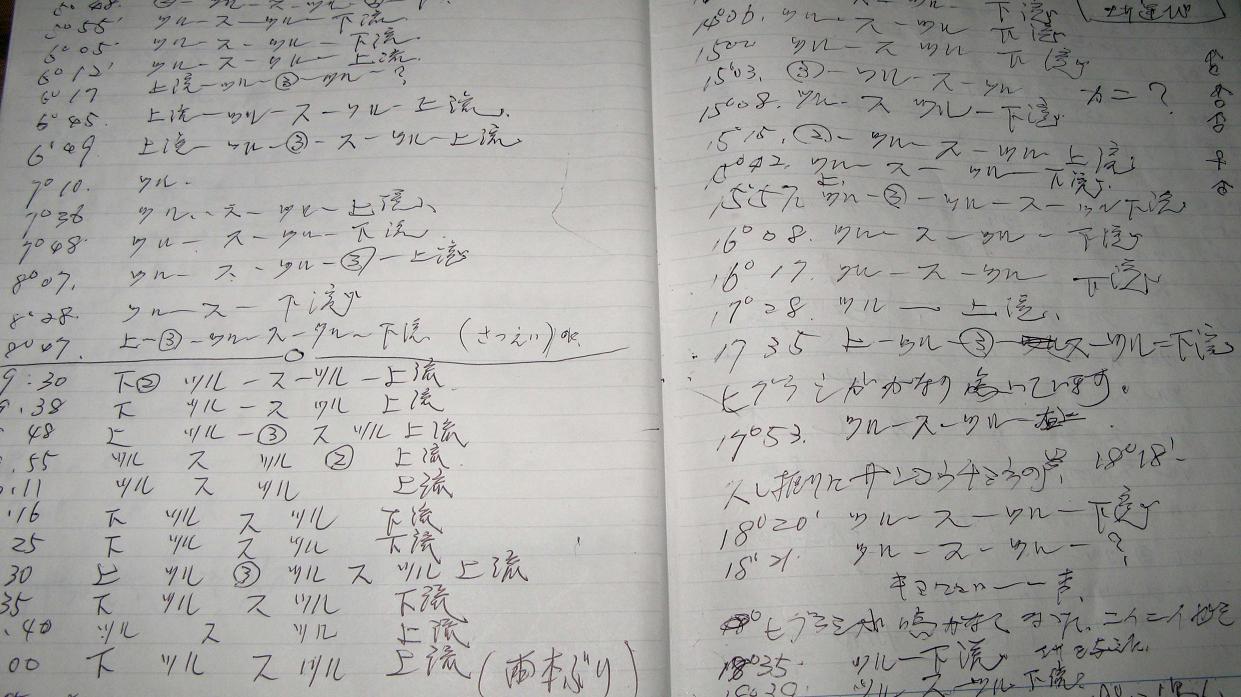 5°55 ツル－ス－ツル－下流
6°05 ツル－ス－ツル－下流
6°12' ツル－ス－ツル－上流
6°17 上流－ツル－②－ツル－？
6°45. 上流－ツル－ス－ツル－上流
6°49 上流－ツル－③－ス－ツル－上流
7°10. ツル.
7°36 ツル、ス－ツル－上流
7°48. ツル－ス－ツル－下流
8°07. ツル－ス－ツル－③－上流
8°28. ツル－ス－下流
8°47. 上－③－ツル－ス－ツル－下流 (さつえい)
9:30 下② ツル－ス－ツル－上流
.38 下 ツル－ス ツル 上流
48 上 ツル－③ ス ツル 上流
.55 ツル ス ツル ② 上流
.11 ツル ス ツル 上流
.16 下 ツル ス ツル 下流
25 下 ツル ス ツル 下流
30 上 ツル ③ ツル ス ツル 上流
35 下 ツル ス ツル 下流
.40 ツル ス ツル 上流
00 下 ツル ス ツル 上流 (雨本ぶり)
14°06. ツル－ス－ツル 下流
15°00 ツル－ス－ツル 下流
15°03. ③－ツル－ス－ツル カニ？
15°08. ツル－ス ツル－下流
15°15. ②－ツル－ス－ツル 上流
15°42. ツル－ス－ツル－下流
15°57 上 ツル－③－ツル－ス－ツル 下流
16°08. ツル－ス－ツル－下流
16°17. ツル－ス－ツル 下流
17°28. ツル－上流
17 35 上－ツル－③－ス－ツル＝下流
ヒグラシがかなり鳴いています。
17°53. ツル－ス－ツル
久し振りにサンコウチョウの声 18°18'
18°20' ツル－ス－ツル－下流
18°21 ツル－ス－ツル－？
声
ヒグラシが鳴かなくなった.
18°35. ツル－下流
ツル－ス－ツル 下流